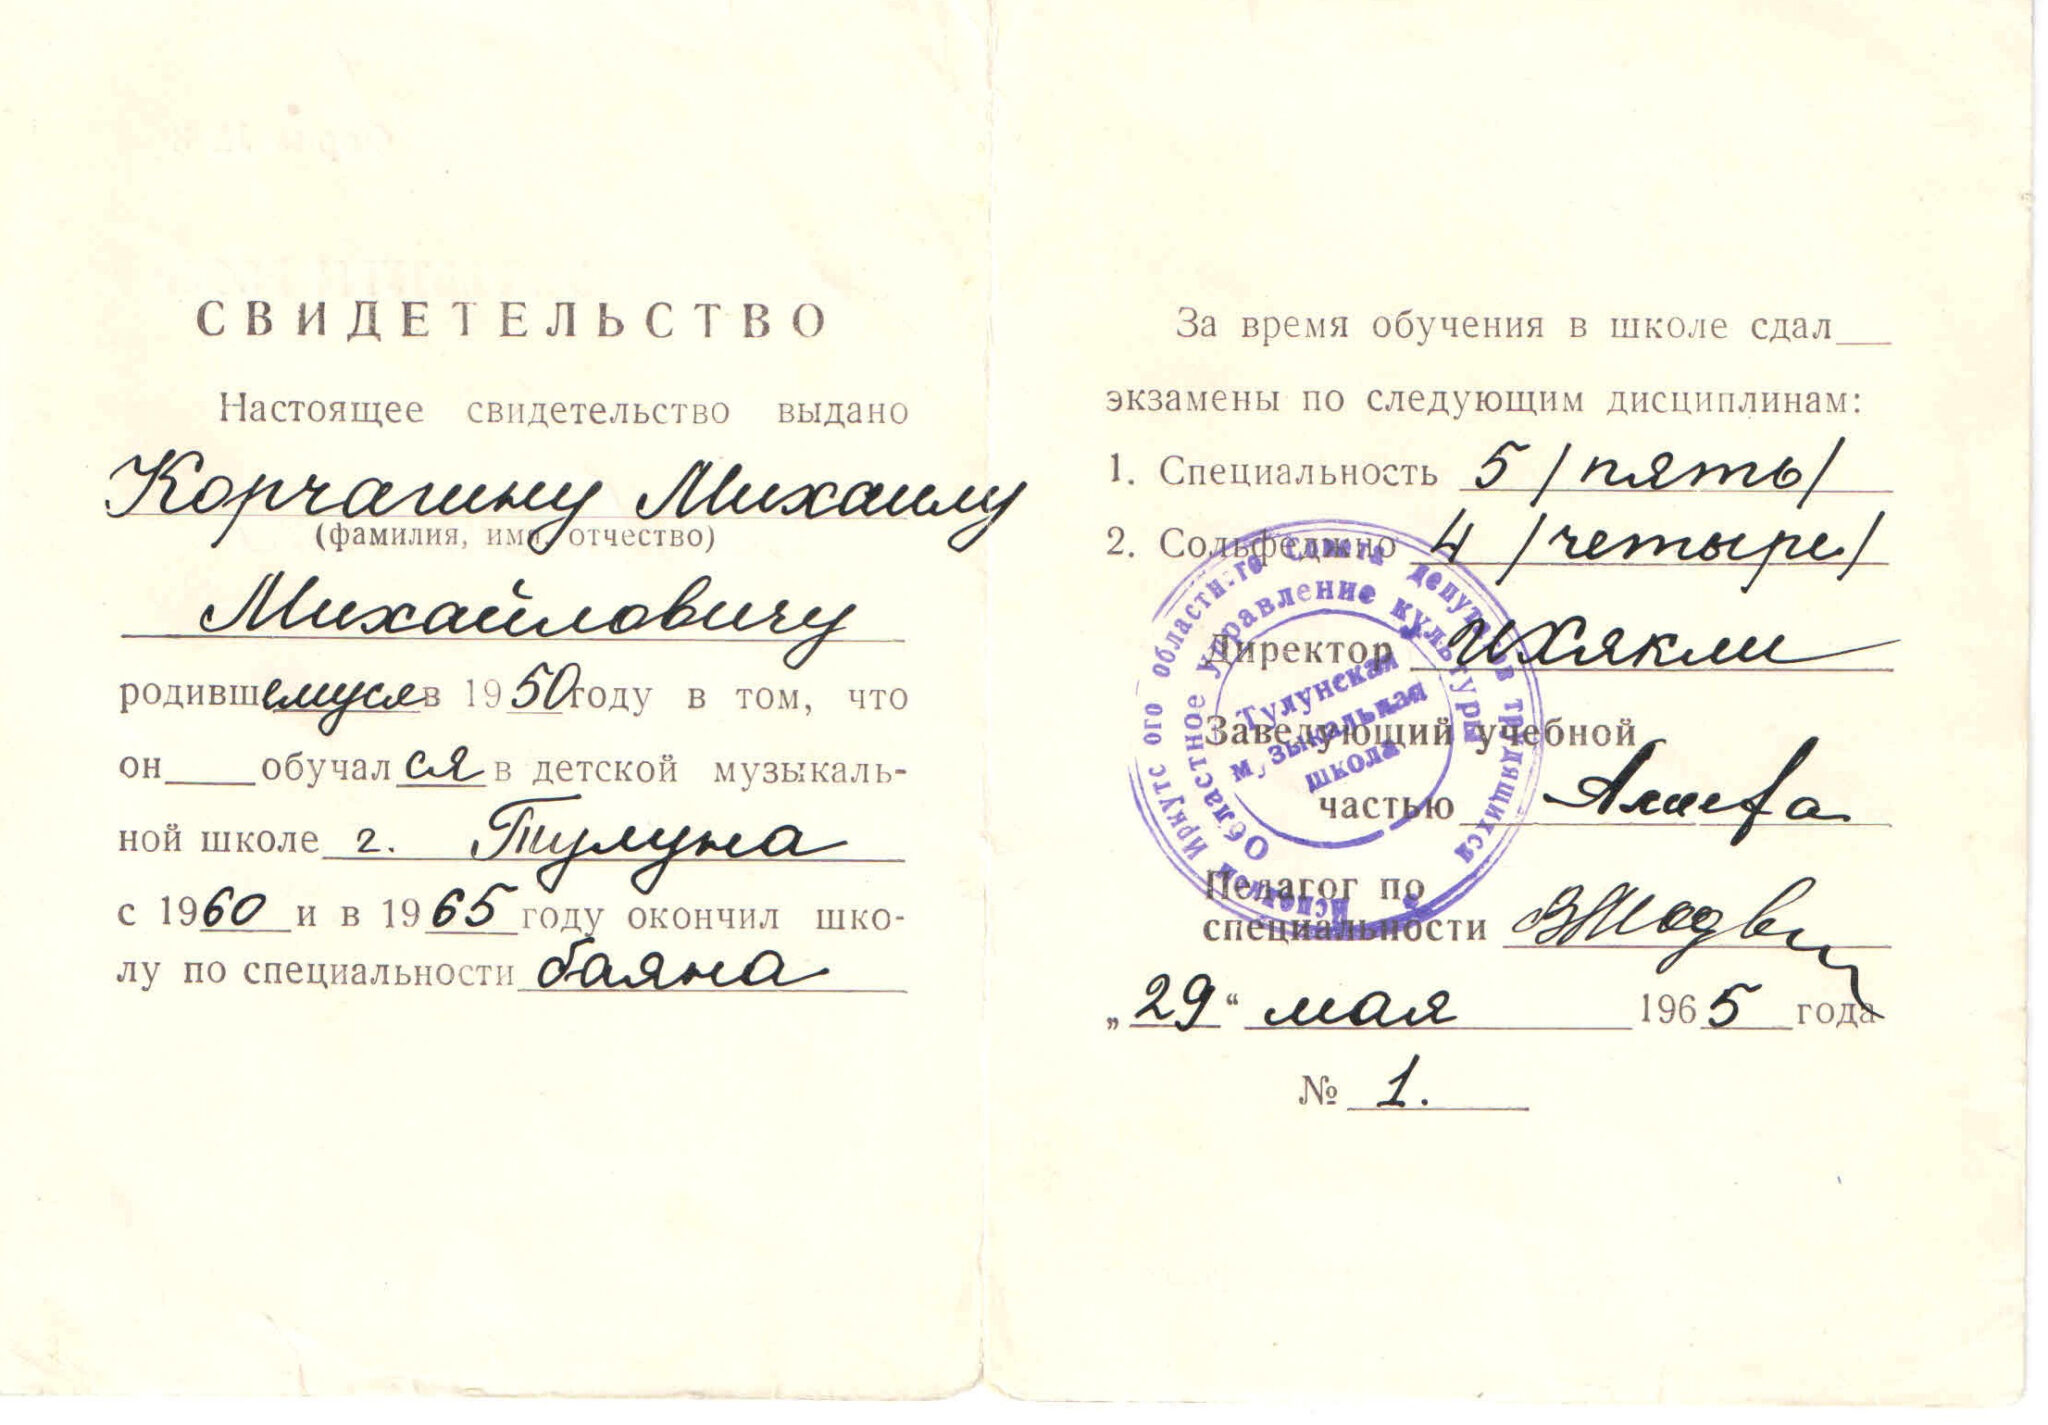 СВИДЕТЕЛЬСТВО
Настоящее свидетельство выдано
Корчагину Михаилу
(фамилия, имя, отчество)
Михайловичу
родившемуся в 1950 году в том, что
он обучался в детской музыкаль-
ной школе г. Тулуна
с 1960 и в 1965 году окончил шко-
лу по специальности баяна
За время обучения в школе сдал
экзамены по следующим дисциплинам:
1. Специальность 5 /пять/
2. Сольфеджио 4 /четыре/
Директор
Заведующий учебной
частью
Педагог по
специальности
„29“ мая 1965 года
№ 1.
областного Совета депутатов трудящихся
Областное управление культуры
Тулунская
музыкальная
школа